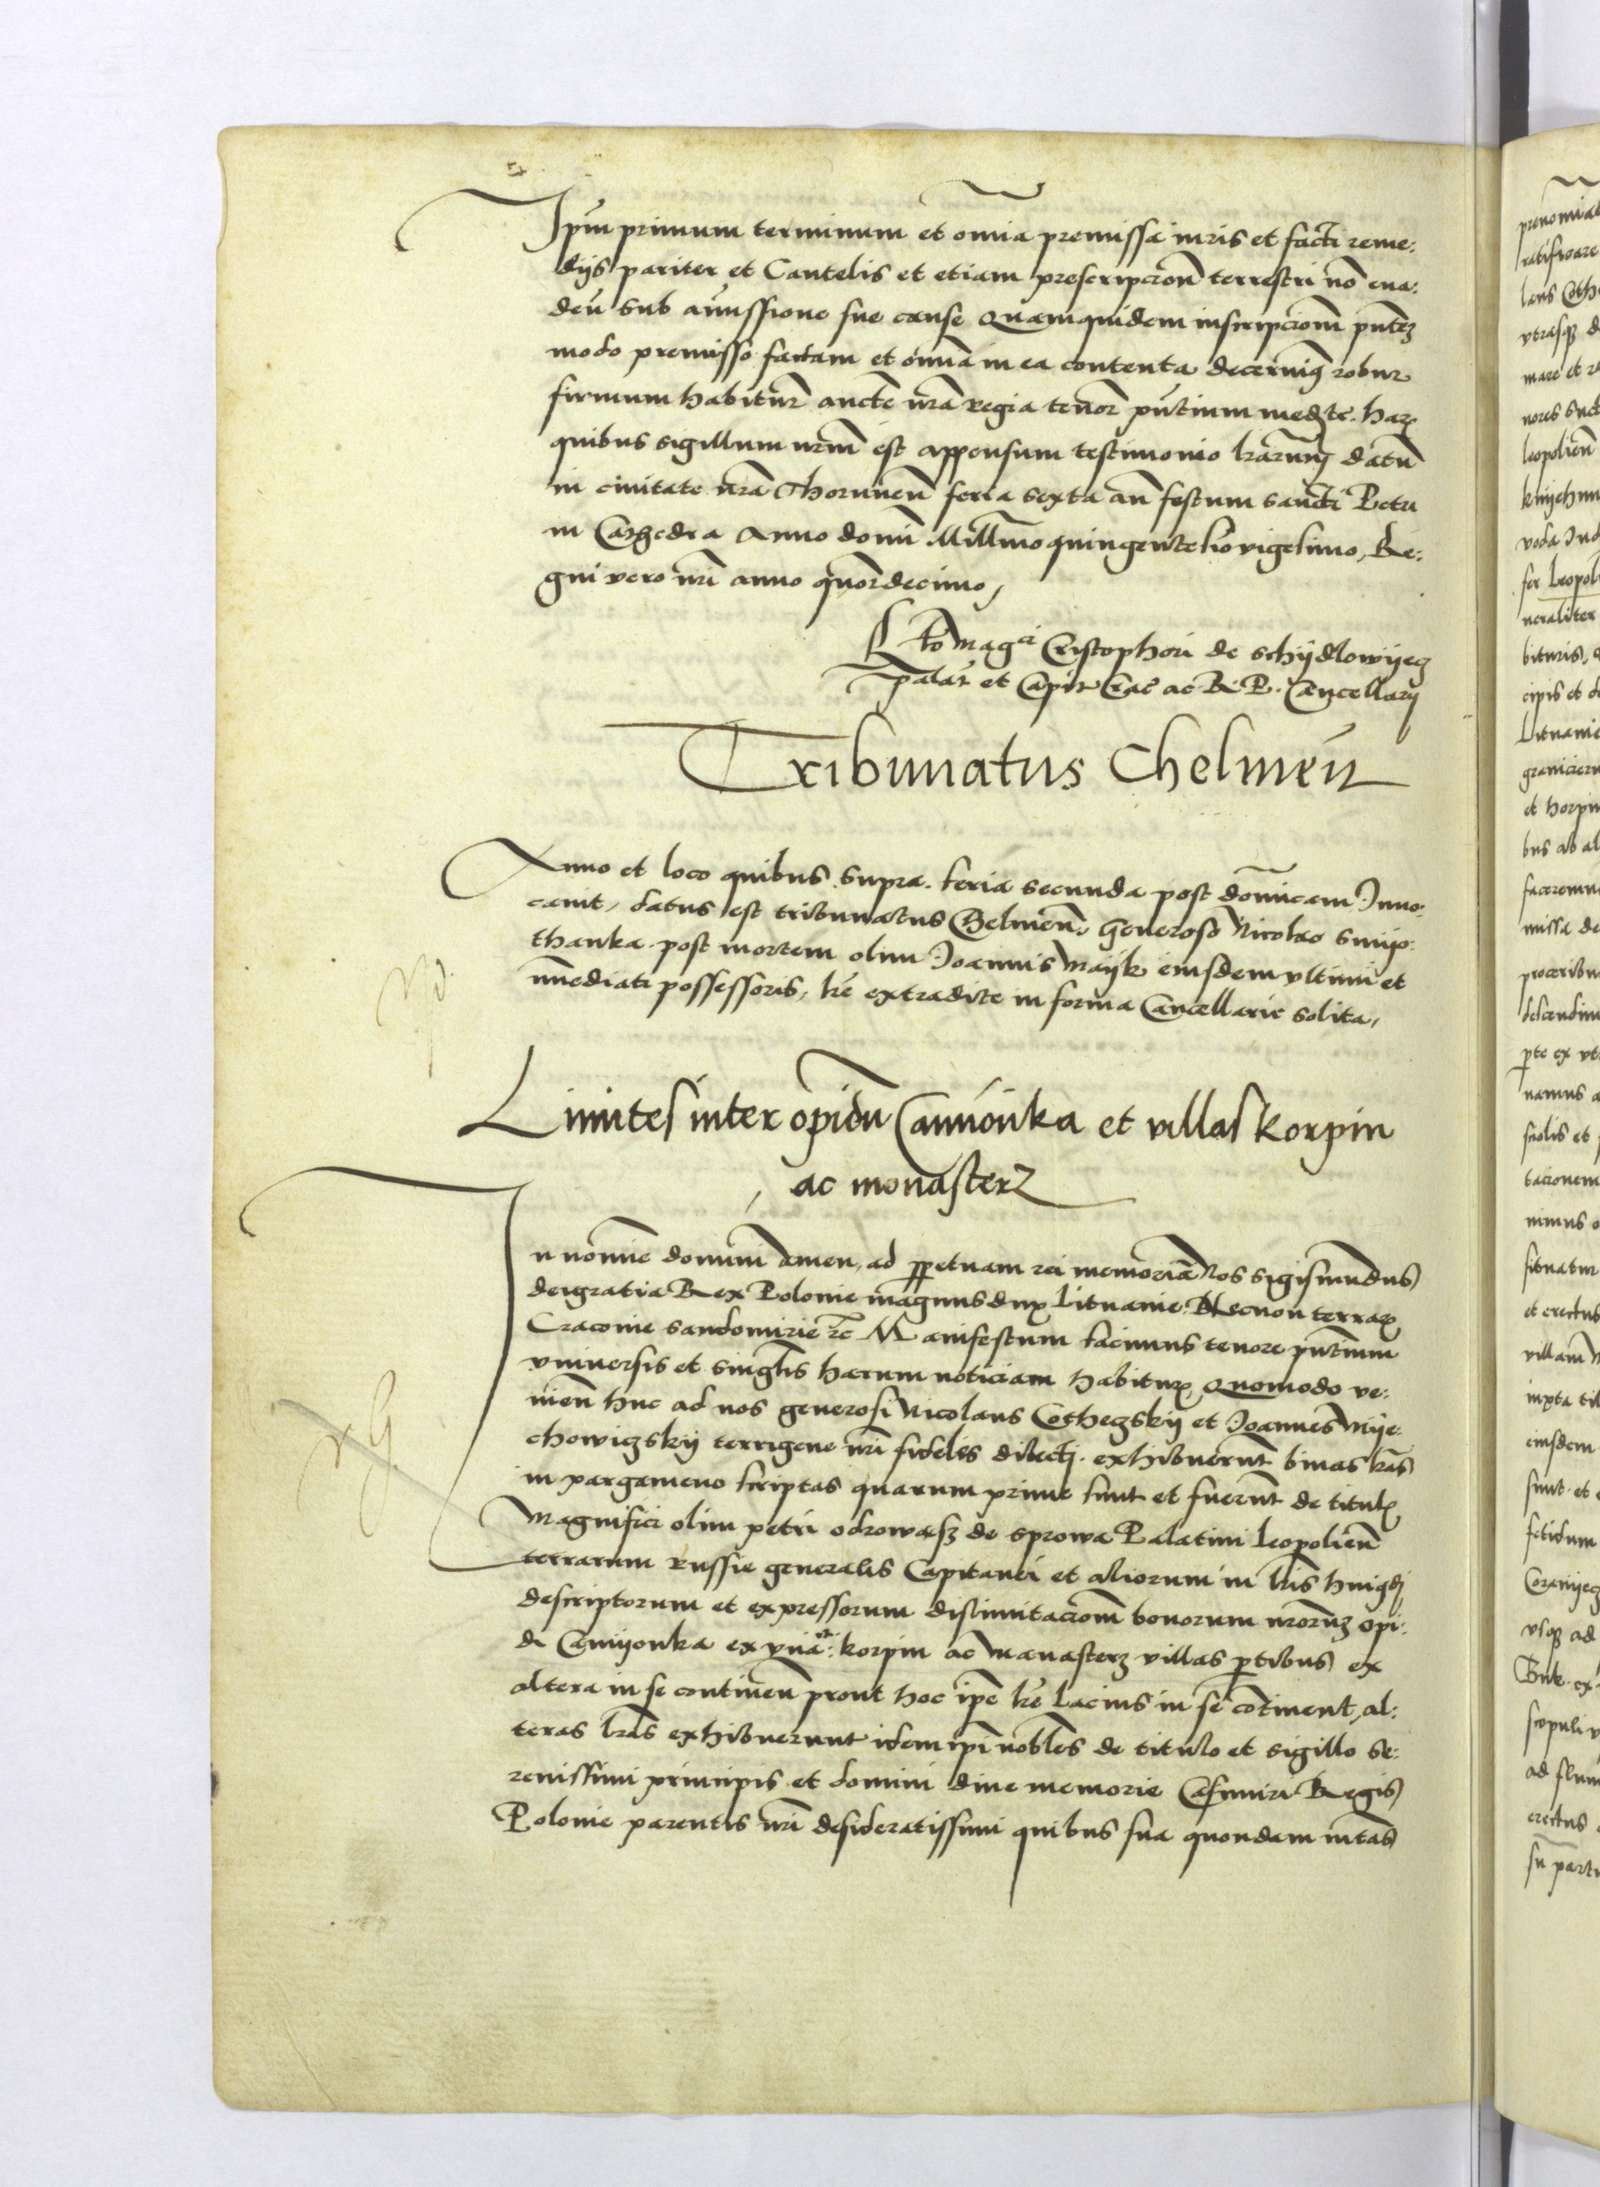 Ipm̄ primum terminum et om̄ia premissa iuris et facti reme:
dijs pariter et Cautelis et etiam prescripcioñ terrestri nō eua:
deñ sub amissione sue cause Quamquidem inscripcionem̄ pn̄tē
modo premisso factam et om̄ia in ea contenta decernimꝰ robur
firmum habiturꝝ aucte nr̄a regia tenor pn̄tium medte. harꝝ
quibus sigillum nr̄m est appensum testimonio lr̄arum datū
in ciuitate nr̄a Thoruneñ feria sexta añ festum sancti Petri
in Cathedra Anno domi Millimo quingentesīo vigesimo, Re:
gni vero nr̄i anno quordecimo,
Rlō Magci Cristophori de schijdlowijecz
palat et Capit Crac ac R. P. Cancellarij
Tribunatus Chelmeñ
Anno et loco quibus supra. feria secunda post dōnicam Inuo:
cauit, datus est tribunatus Chelmeñ. Generoso Nicolao smijo:
thanka post mortem olim Joannis Maijk eiusdem vltimi et
immediati possessoris, lrē extradite in forma Cancellarie solita,
Limites inter opidū Camionka et villas korpin
ac monasterz
In nomīe domini Amen, ad ꝑpetuam rei memoriā Nos sigismundus
dei gratia Rex Polonie magnus dux Lituanie. Necnon terrarꝝ
Cracouie sandomirie zc̄ Manifestum facimus tenore pn̄tium
vniuersis et singl̄is harum noticiam habiturꝝ Quomodo ve:
nieñ huc ad nos generosi Nicolaus Cothczskij et Joannes Nije:
chowiczskij terrigene nr̄i fidelis dilecti. exhibuerūt binas lr̄as
in pargameno scriptas quarum prime sunt et fuerūt de titulꝫ
Magnifici olim petri odrowasz de sprowa Palatini leopolieñ
terrarum russie generalis Capitanei et aliorum in lr̄is huiꝰmōi
descriptorum et expressorum dislimitacionem̄ bonorum nr̄orū opi:
di Camijonka ex vna et: korpin ac Manasterz villas ꝑtibus ex
altera in se contineñ prout hoc ip̄e lrē lacius in se continent, al:
teras lr̄as exhibuerunt idem ip̄i nobl̄es de titulo et sigillo se:
renissimi principis et domini diue memorie Casimiri Regis
Polonie parentis nr̄i desideratissimi quibus sua quondam mtas